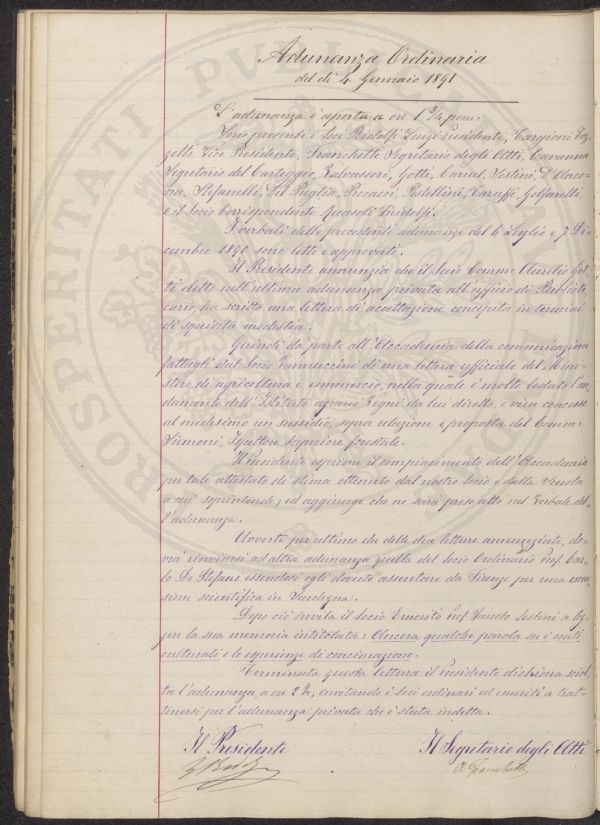 Adunanza Ordinaria
del dì 4 Gennaio 1891
L'adunanza è aperta a ore 1 3/4 pom:
Sono presenti i Soci Ridolfi Luigi Presidente, Targioni Toz-
zetti Vice Presidente, Franchetti Segretario degli Atti, Cavanna
Segretario del Carteggio, Valvassori, Gotti, Caruel, Sestini, D'Anco-
na, Stefanelli, Del Puglia, Pecacci, Pestellini, Taruffi, Golfarelli,
e il Socio Corrispondente Ricasoli Firidolfi.
I verbali delle precedenti adunanze del 6 Luglio e 7 Di-
cembre 1890 sono letti e approvati.
Il Presidente annunzia che il Socio Comm: Aurelio Got-
ti eletto nell'ultima adunanza privata all'ufficio di Bibliote-
cario, ha scritto una lettera di accettazione concepita in termini
di squisita modestia.
Quindi dà parte all'Accademia della comunicazione
fattagli dal Socio Vannuccini di una lettera ufficiale del Mini-
stro di agricoltura e commercio, nella quale è molto lodato l'an-
damento dell'Istituto agrario Vegni da lui diretto, e vien concesso
al medesimo un sussidio, sopra relazione e proposta del Comm:
Siemoni, Ispettore superiore forestale.
Il Presidente esprime il compiacimento dell'Accademia
per tale attestato di stima ottenuto dal nostro Socio e dalla Scuola
a cui soprintende, ed aggiunge che ne sarà preso atto nel Verbale del-
l'adunanza.
Avverte per ultimo che delle due letture annunziate, do-
vrà rinviarsi ad altra adunanza quella del Socio Ordinario Prof. Car-
lo De Stefani essendosi egli dovuto assentare da Firenze per una escur-
sione scientifica in Sardegna.
Dopo ciò invita il Socio Emerito Prof. Fausto Sestini a leg-
gere la sua memoria intitolata: Ancora qualche parola su i conti
culturali e le esperienze di concimazione.
Terminata questa lettura il Presidente dichiara sciol-
ta l'adunanza, a ore 2 1/2, invitando i Soci ordinari ed emeriti a trat-
tenersi per l'adunanza privata che è stata indetta.
Il Presidente
Il Segretario degli Atti
A. Franchetti
PROSPERITATI PUBLICAE